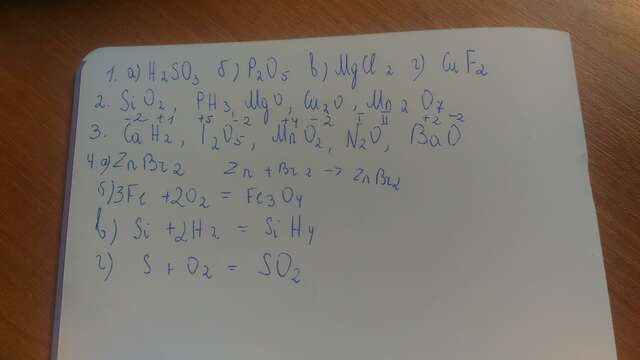 1. а) H2SO3 б) P2O5 в) MgCl2 г) CuF2
2. SiO2, PH3, MgO, Cu2O, Mn2O7
-2 +1 +5 -2 +4 -2 I II +2 -2
3. CaH2, I2O5, MnO2, N2O, BaO
4 а) ZnBr2 Zn + Br2 → ZnBr2
б) 3Fe + 2O2 = Fe3O4
в) Si + 2H2 = SiH4
г) S + O2 = SO2